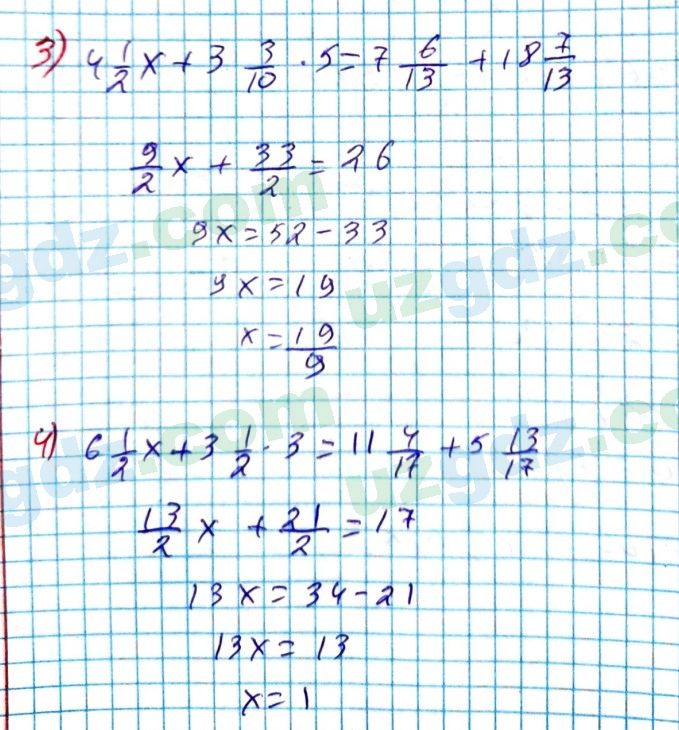 3) 4 1/2 x + 3 3/10 · 5 = 7 6/13 + 18 7/13
9/2 x + 33/2 = 26
9x = 52 - 33
9x = 19
x = 19/9
4) 6 1/2 x + 3 1/2 · 3 = 11 4/17 + 5 13/17
13/2 x + 21/2 = 17
13x = 34 - 21
13x = 13
x = 1
uzgdz.com